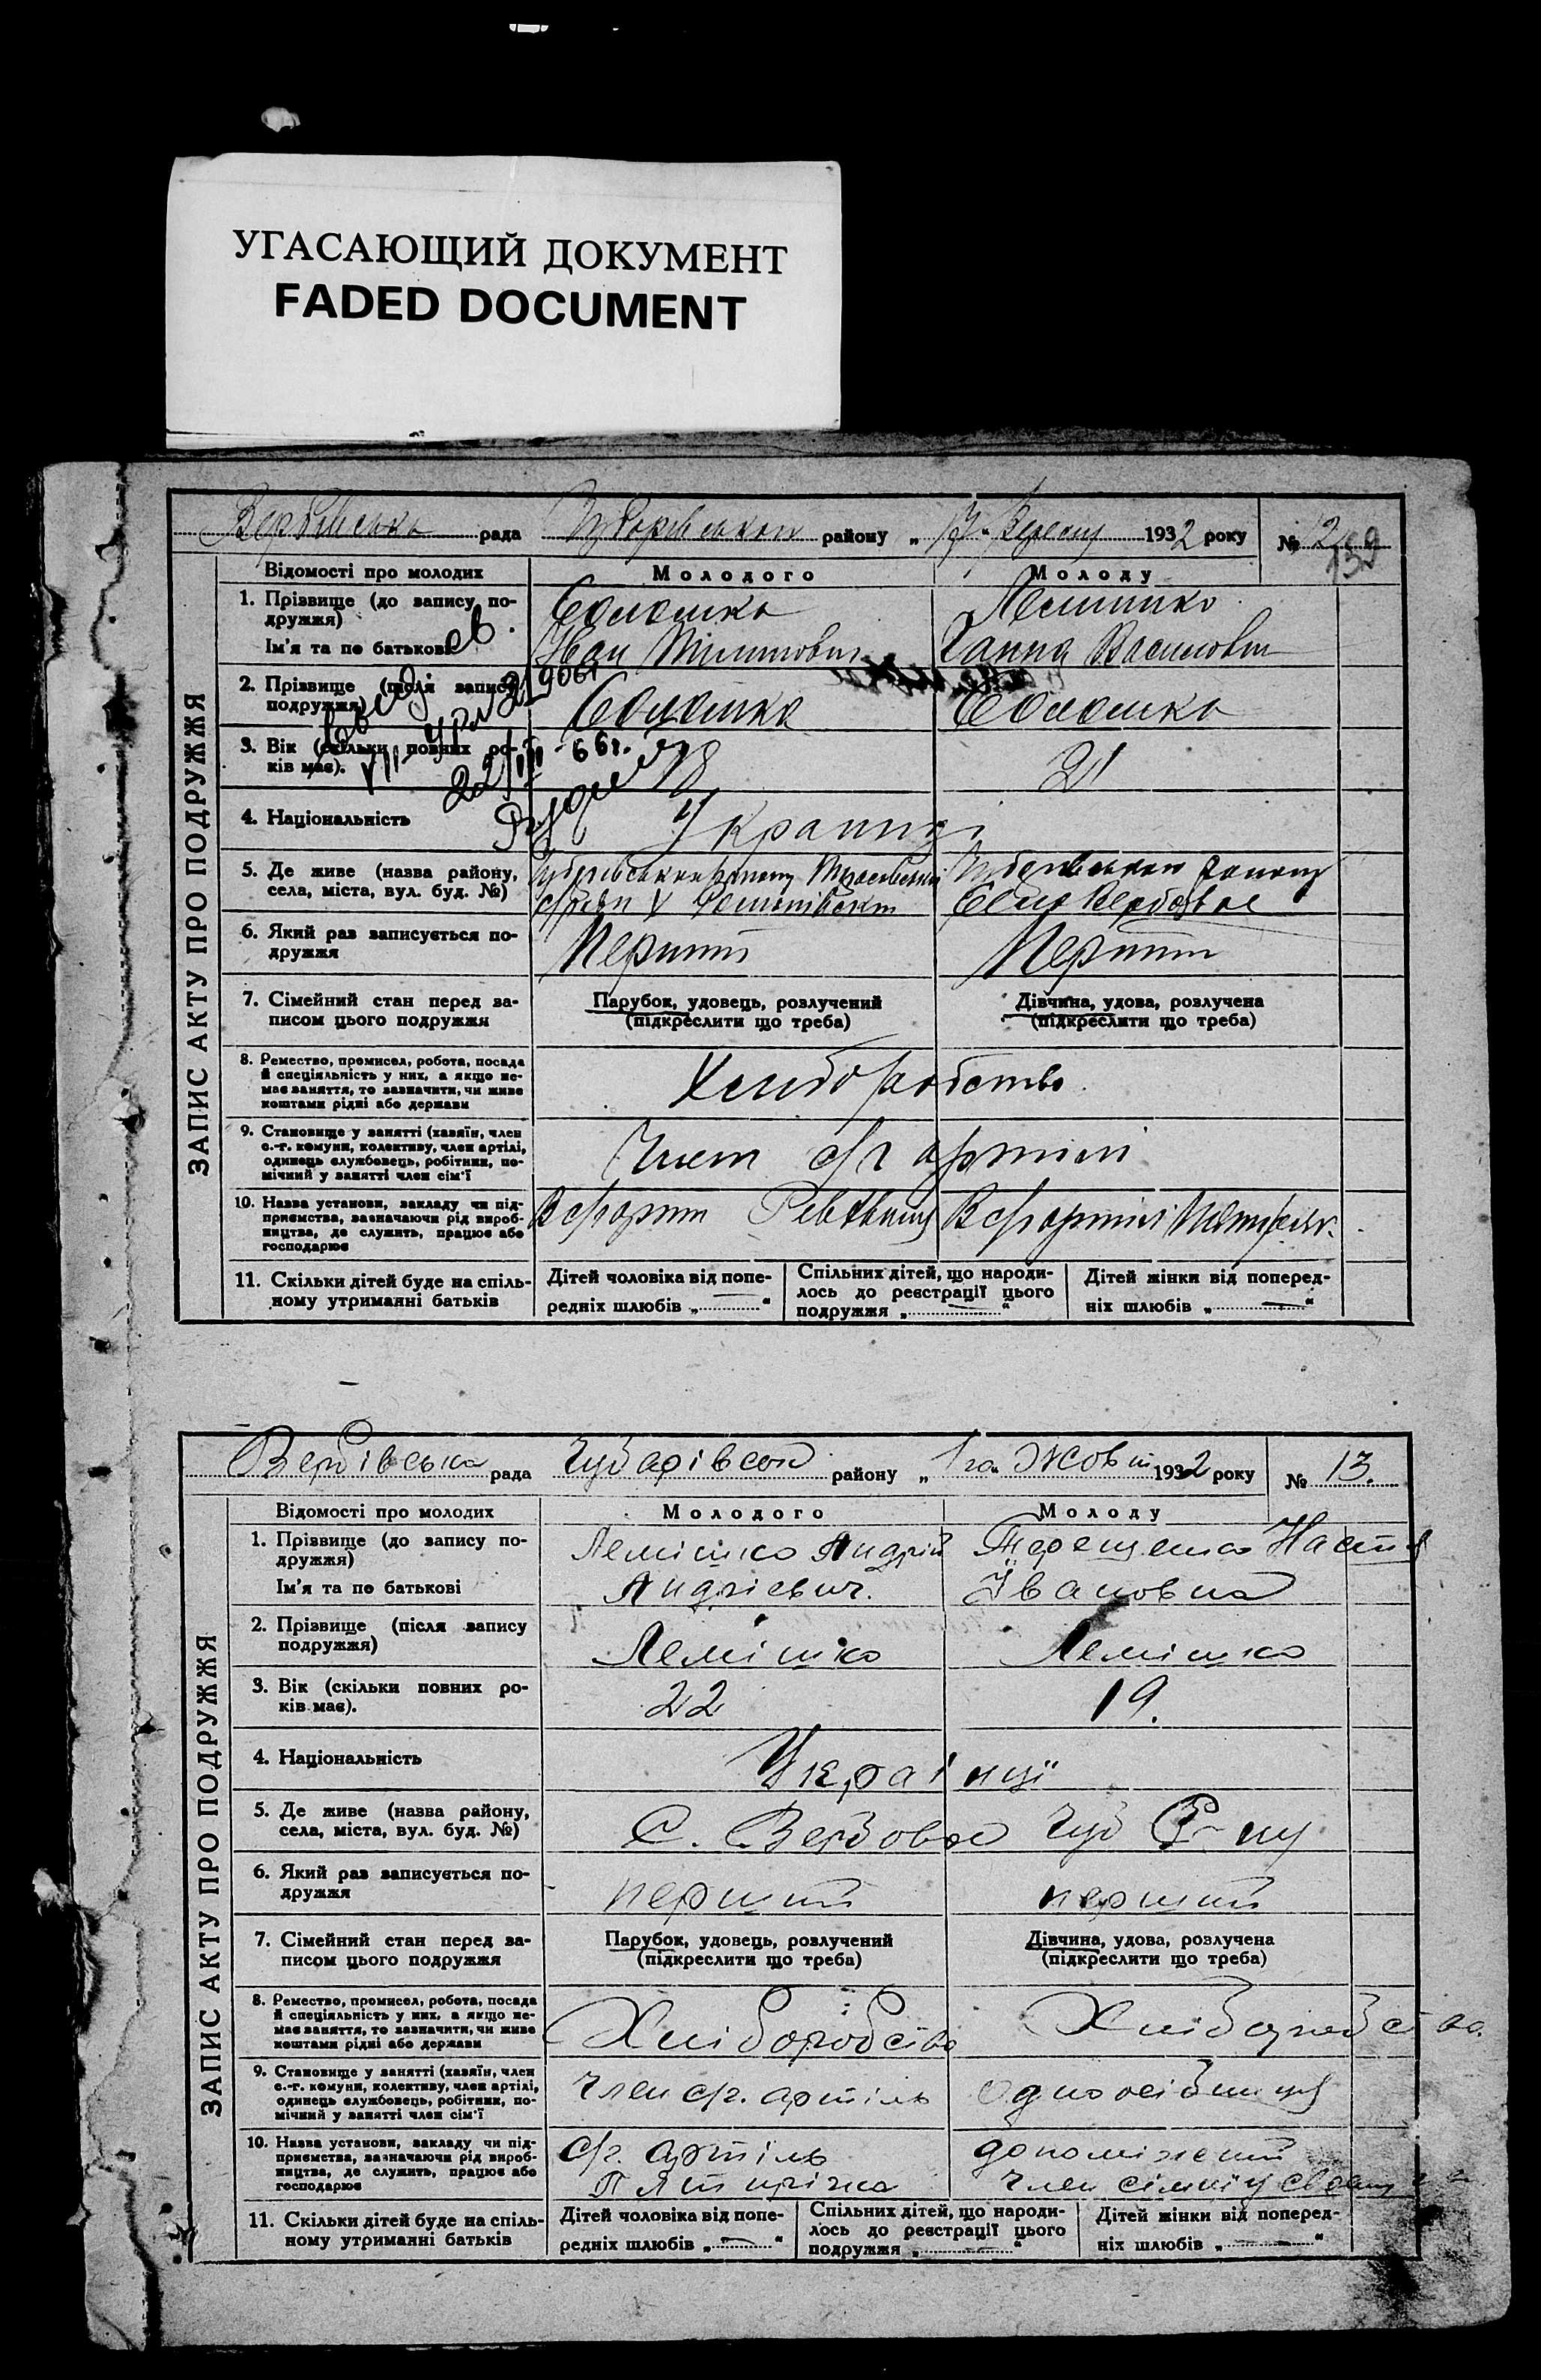 УГАСАЮЩИЙ ДОКУМЕНТ
FADED DOCUMENT
ЗАПИС АКТУ ПРО ПОДРУЖЖЯ
Вербівська рада району „ " 1932 року № 12
Відомості про молодих Молодого Молоду
1. Прізвище (до запису по-
дружжя) Соломка Лемішко
Ім'я та по батькові Іван Ганна
2. Прізвище (після запису
подружжя) Соломка Соломка
3. Вік (скільки повних ро-
ків має). 21
22/III - 66 г.
4. Національність Украинці
5. Де живе (назва району,
села, міста, вул. буд. №) Село Вербовое
6. Який раз записується по-
дружжя Перший Перший
7. Сімейний стан перед за-
писом цього подружжя
Парубок, удовець, розлучений
(підкреслити що треба)
Дівчина, удова, розлучена
(підкреслити що треба)
8. Ремество, промисел, робота, посада
й спеціяльність у них, а якщо не-
має заняття, то зазначити, чи живе
коштами рідні або держави
Хлиборобство
9. Становище у занятті (хазяїн, член
с.-г. комуни, колективу, член артілі,
одинець службовець, робітник, по-
мічний у занятті член сім'ї
Член с/г артілі
10. Назва установи, закладу чи під-
приємства, зазначаючи рід вироб-
ництва, де служить, працює або
господарює
11. Скільки дітей буде на спіль-
ному утриманні батьків
Дітей чоловіка від попе-
редніх шлюбів „ — "
Спільних дітей, що народи-
лось до реєстрації цього
подружжя „ — "
Дітей жінки від поперед-
ніх шлюбів „ — "
ЗАПИС АКТУ ПРО ПОДРУЖЖЯ
Вербівська рада Чубарівського району „1го" Жовтн 1932 року № 13.
Відомості про молодих Молодого Молоду
1. Прізвище (до запису по-
дружжя) Лемішко Андрій Терещенко Настя
Ім'я та по батькові Андрієвич. Івановна
2. Прізвище (після запису
подружжя) Лемішко Лемішко
3. Вік (скільки повних ро-
ків має). 22 19.
4. Національність Українці
5. Де живе (назва району,
села, міста, вул. буд. №) С. Вербовое Чуб Р-ну
6. Який раз записується по-
дружжя перший перший
7. Сімейний стан перед за-
писом цього подружжя
Парубок, удовець, розлучений
(підкреслити що треба)
Дівчина, удова, розлучена
(підкреслити що треба)
8. Ремество, промисел, робота, посада
й спеціяльність у них, а якщо не-
має заняття, то зазначити, чи живе
коштами рідні або держави
Хліборобство Хліборобство.
9. Становище у занятті (хазяїн, член
с.-г. комуни, колективу, член артілі,
одинець службовець, робітник, по-
мічний у занятті член сім'ї
Член с/г. артіль одноосібниця
10. Назва установи, закладу чи під-
приємства, зазначаючи рід вироб-
ництва, де служить, працює або
господарює
с/г. артіль
Пятирічка
член
11. Скільки дітей буде на спіль-
ному утриманні батьків
Дітей чоловіка від попе-
редніх шлюбів „ — "
Спільних дітей, що народи-
лось до реєстрації цього
подружжя „ — "
Дітей жінки від поперед-
ніх шлюбів „ — "